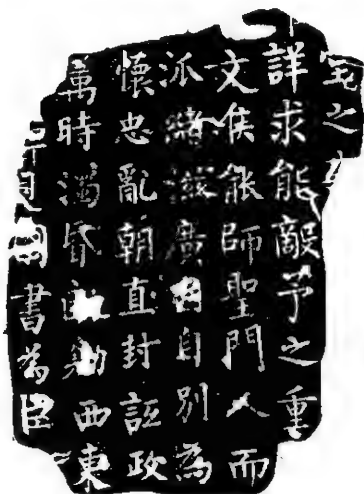 之
詳求能敵予之重
文侯能師聖門人而
派緒廣自別為
懷忠亂朝直封詆政
萬時濁昏西東
書為臣